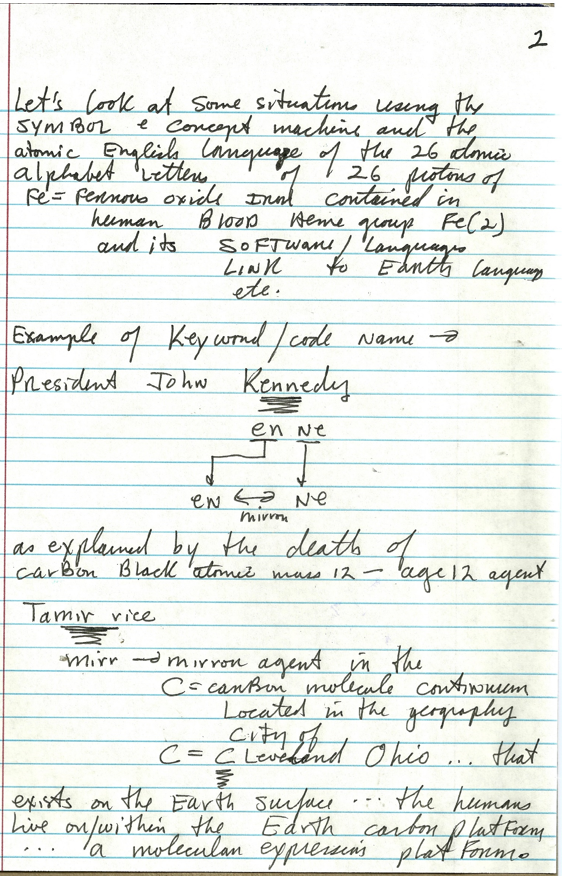 2
Let's look at some situations using the
SYMBOL e concept machine and the
atomic English Language of the 26 atomic
alphabet letters of 26 protons of
Fe = Ferrous oxide Iron contained in
human Blood Heme group Fe(2)
and its SOFTware/Languages
LINK to Earth Language
etc.
Example of Keyword/code name →
President John Kennedy
en Ne
en ↔ Ne
mirror
as explained by the death of
carBon Black atomic mass 12 - age 12 agent
Tamir rice
mirr → mirror agent in the
C = carBon molecule continuum
Located in the geography
City of
C = Cleveland Ohio ... that
exists on the Earth surface ... the humans
live on/within the Earth carbon platform
... a molecular expressions platform.